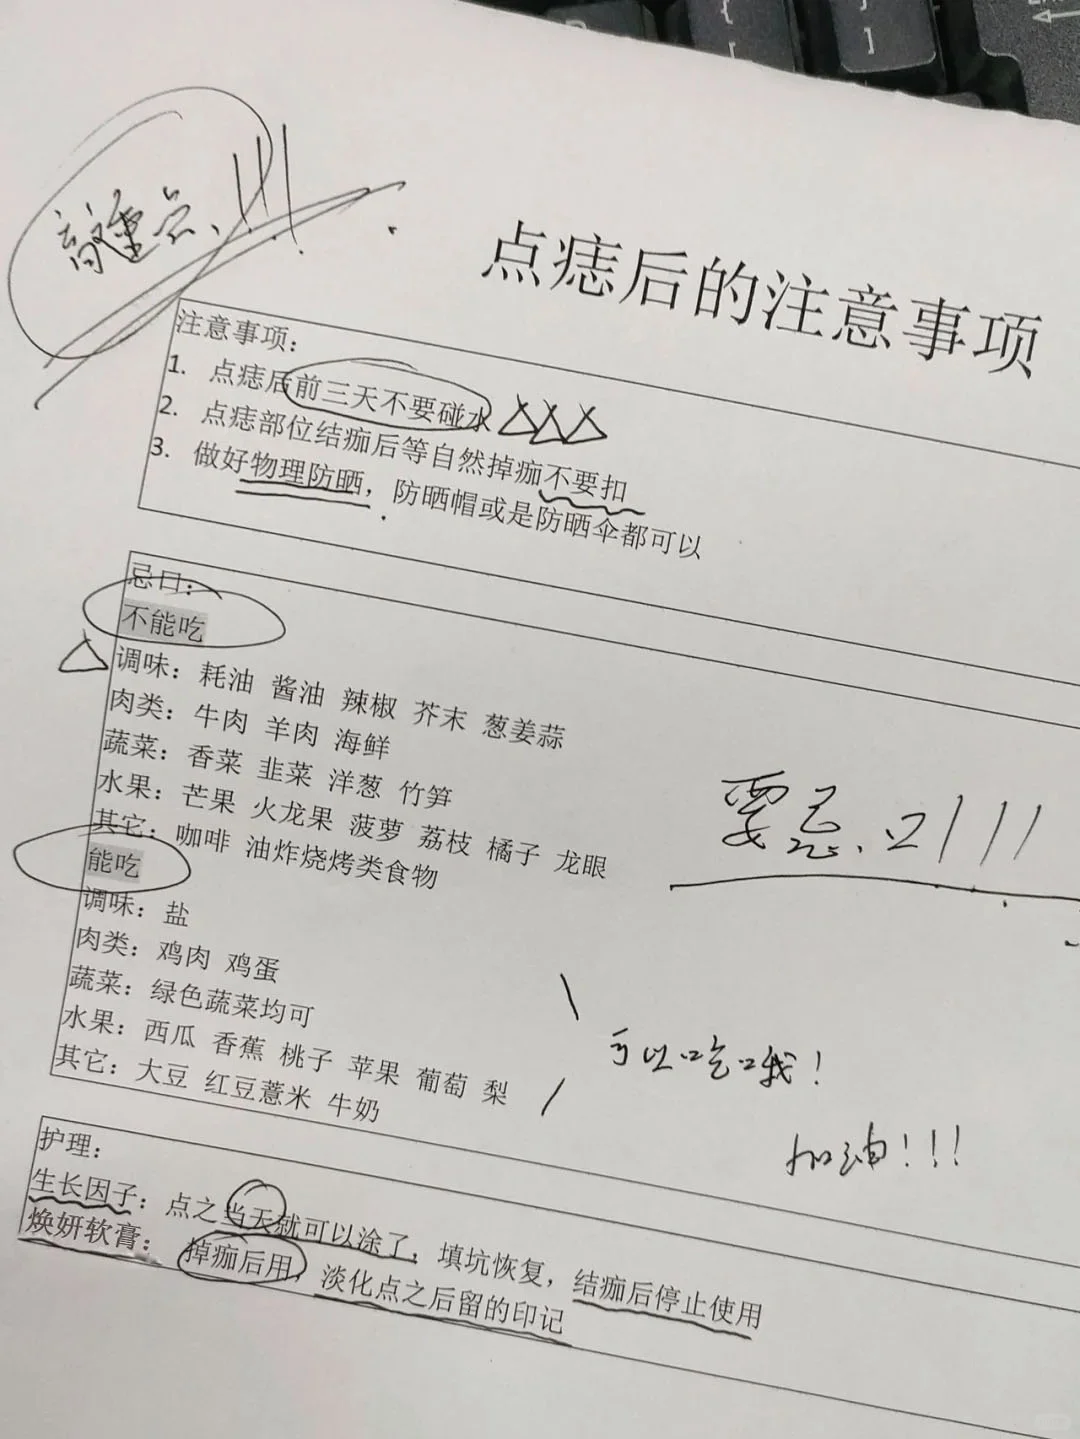 高重点、!!!
点痣后的注意事项
注意事项：
1. 点痣后前三天不要碰水
2. 点痣部位结痂后等自然掉痂不要扣
3. 做好物理防晒，防晒帽或是防晒伞都可以
忌口：
不能吃
调味：耗油 酱油 辣椒 芥末 葱姜蒜
肉类：牛肉 羊肉 海鲜
蔬菜：香菜 韭菜 洋葱 竹笋
水果：芒果 火龙果 菠萝 荔枝 橘子 龙眼
其它：咖啡 油炸烧烤类食物
要忌口!!!
能吃
调味：盐
肉类：鸡肉 鸡蛋
蔬菜：绿色蔬菜均可
水果：西瓜 香蕉 桃子 苹果 葡萄 梨
其它：大豆 红豆薏米 牛奶
可以吃哦!
加油!!!
护理：
生长因子：点之当天就可以涂了，填坑恢复，结痂后停止使用
焕妍软膏：掉痂后用，淡化点之后留的印记